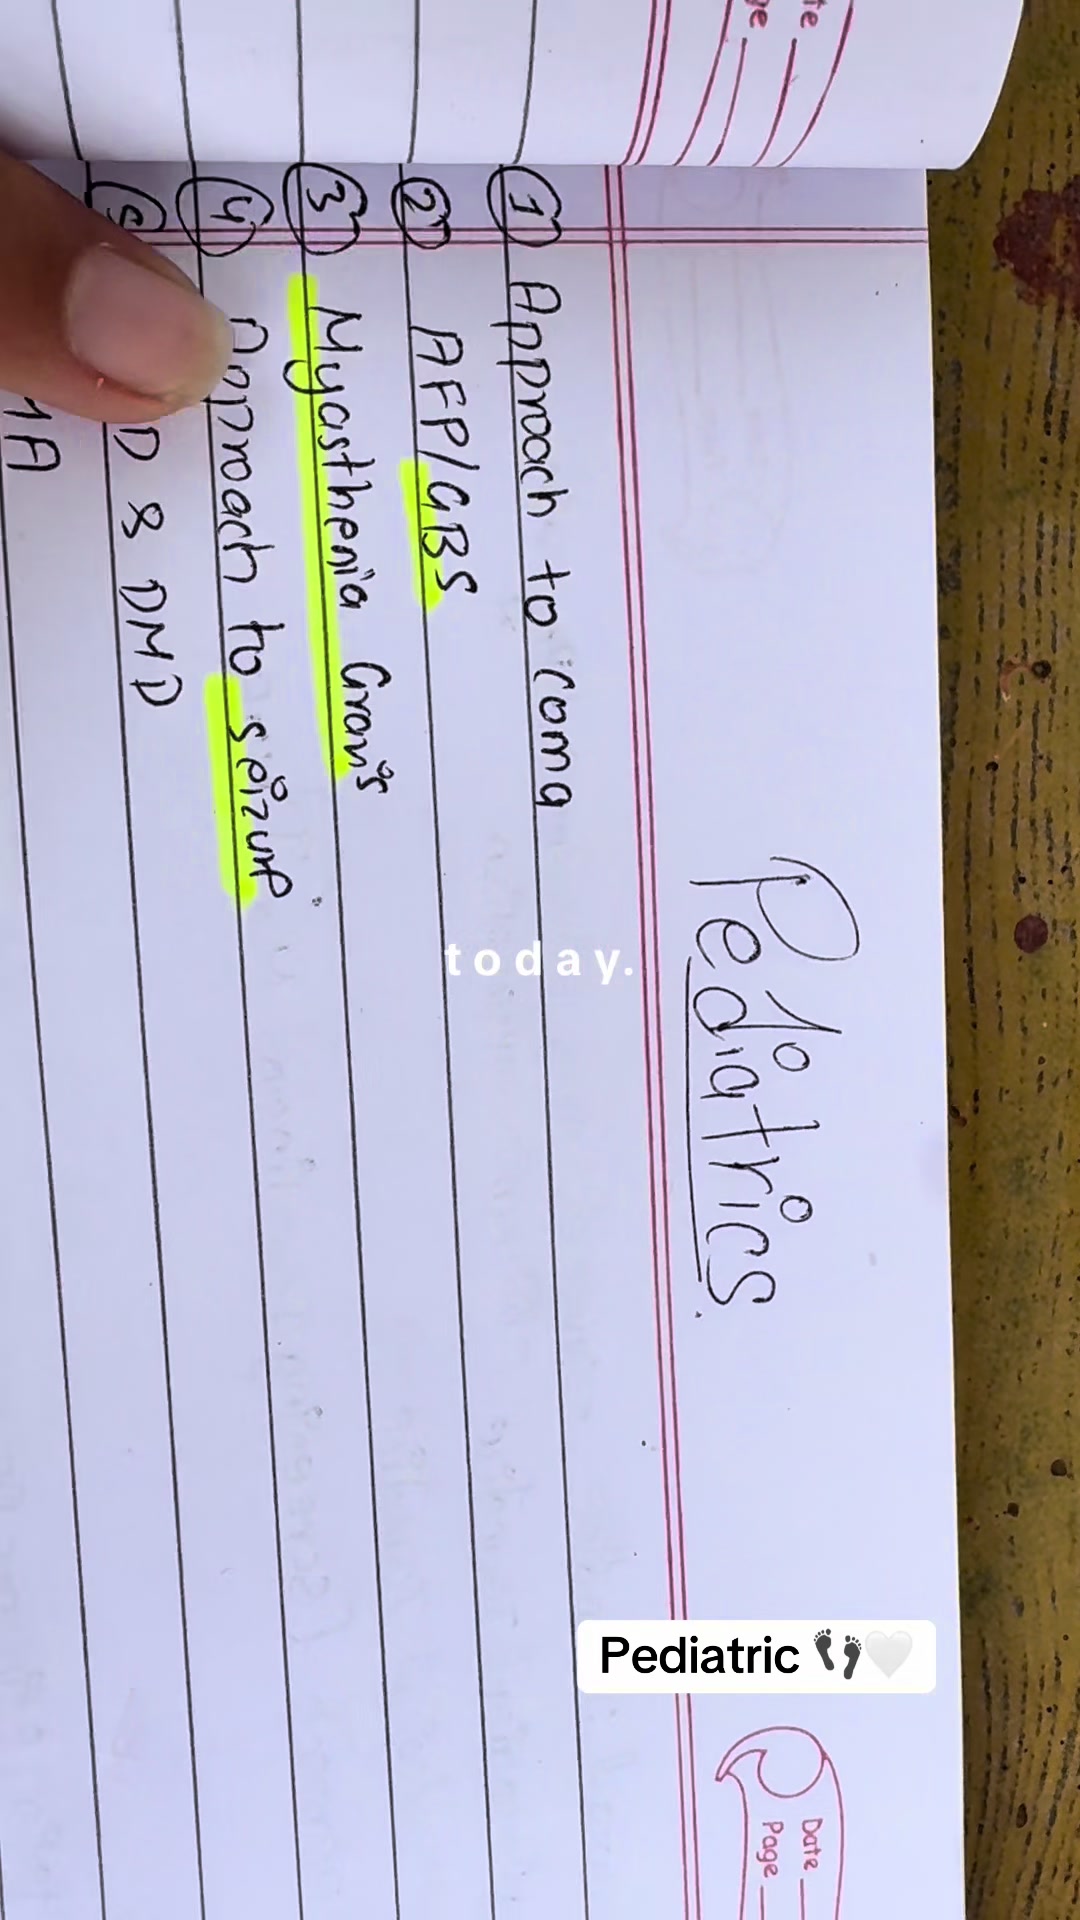 Pediatrics.
① Approach to coma
② AFP/GBS
③ Myasthenia Gravis
④ Approach to seizure
⑤ D & DMD
MA
today.
Pediatric 👣🤍
Date
Page
te
ge